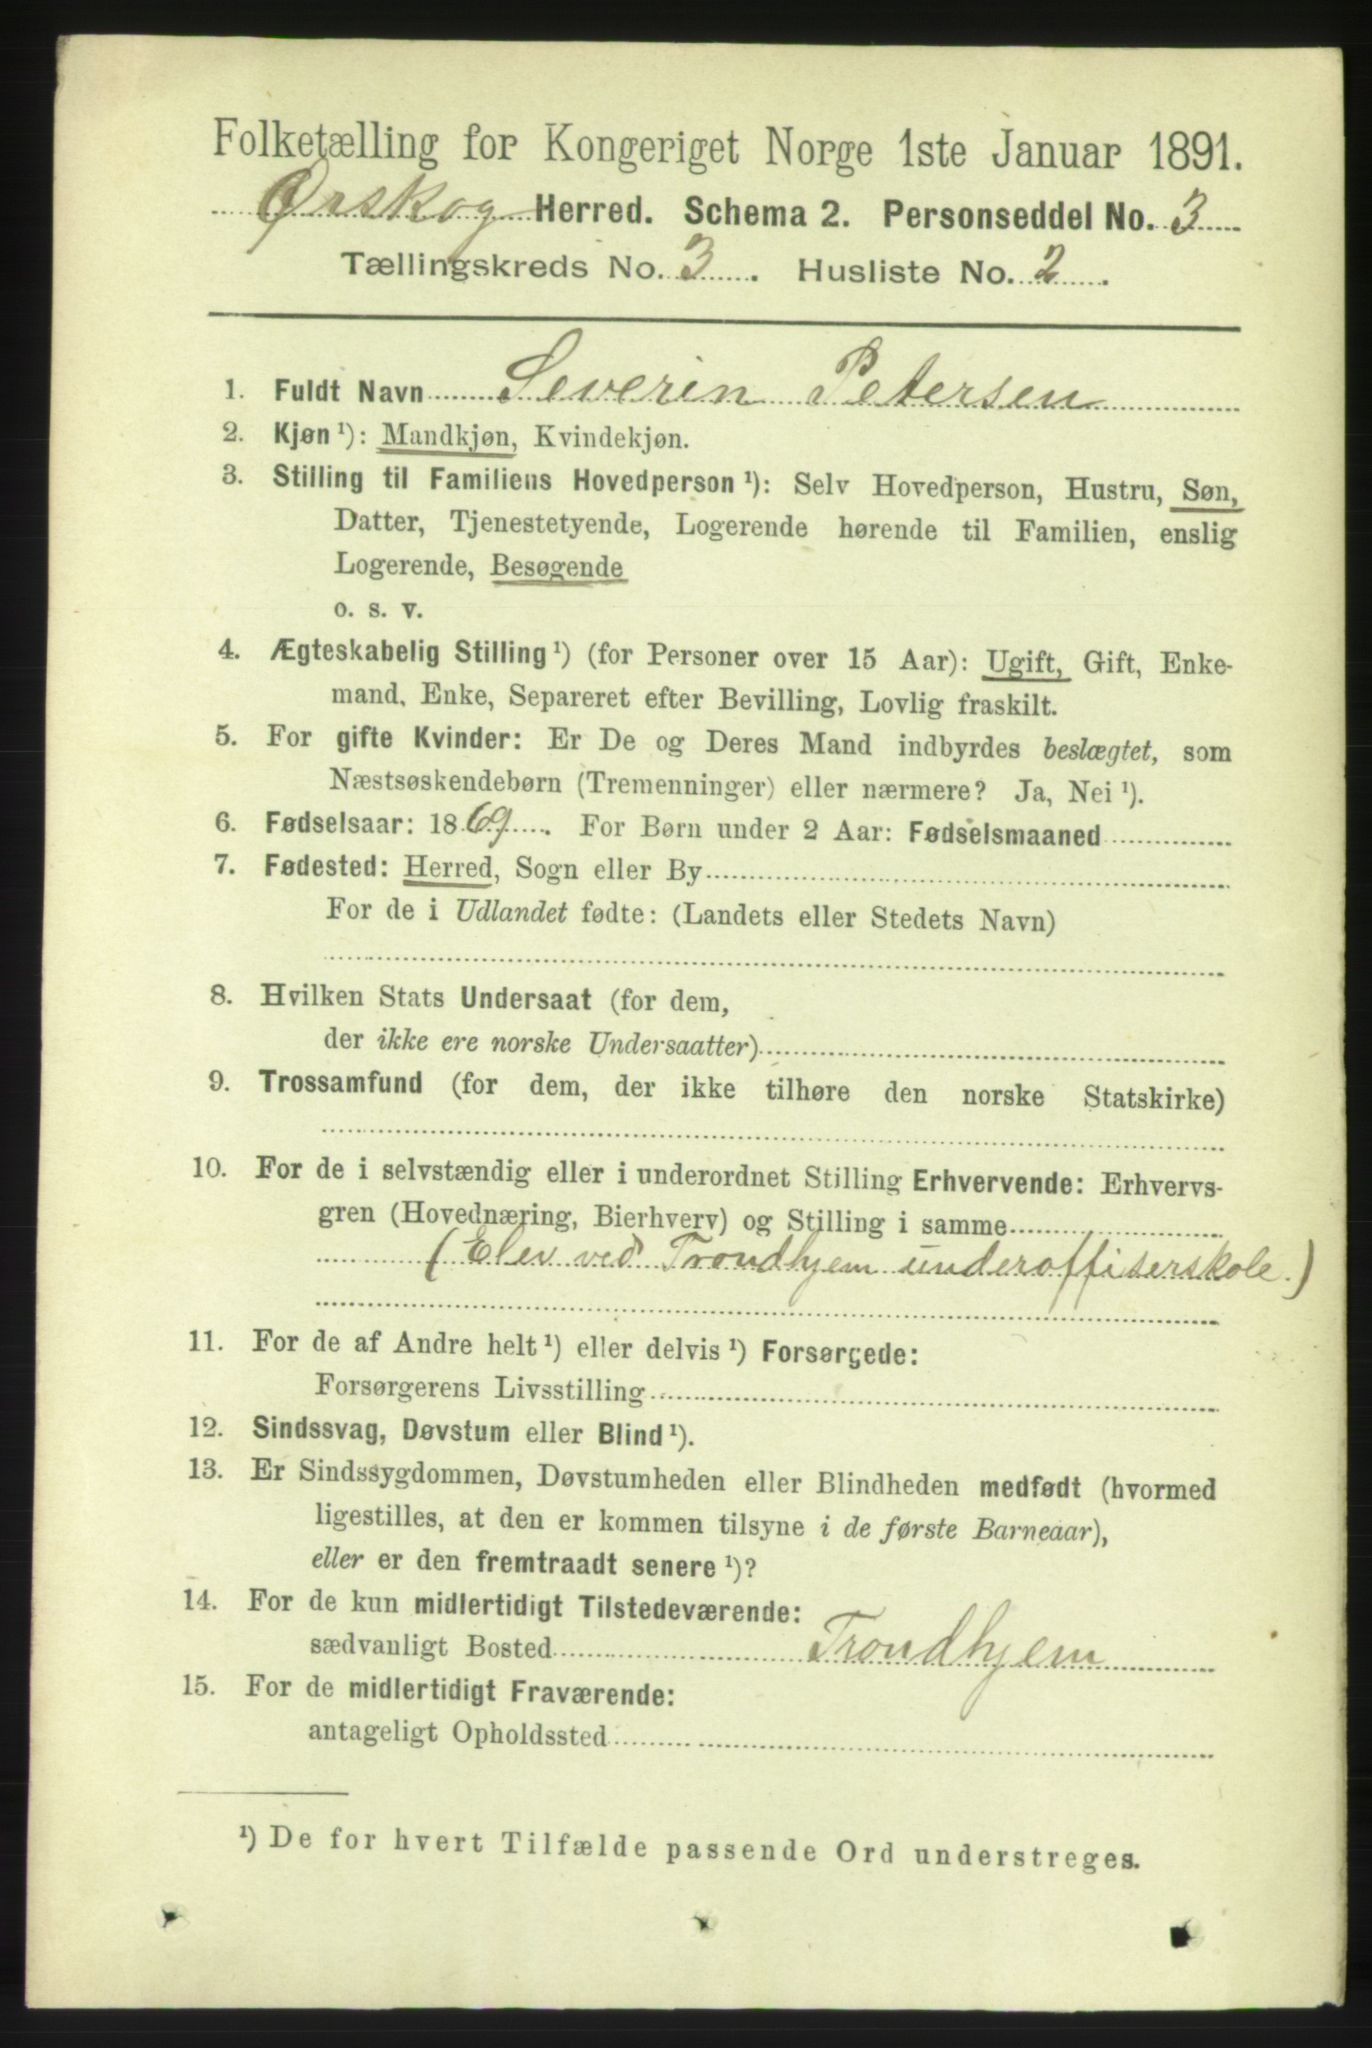 Folketælling for Kongeriget Norge 1ste Januar 1891.
Ørskog Herred. Schema 2. Personseddel No. 3
Tællingskreds No. 3. Husliste No. 2.
1. Fuldt Navn Severin Petersen
2. Kjøn ¹): Mandkjøn, Kvindekjøn.
3. Stilling til Familiens Hovedperson ¹): Selv Hovedperson, Hustru, Søn,
Datter, Tjenestetyende, Logerende hørende til Familien, enslig
Logerende, Besøgende
o. s. v.
4. Ægteskabelig Stilling ¹) (for Personer over 15 Aar): Ugift, Gift, Enke-
mand, Enke, Separeret efter Bevilling, Lovlig fraskilt.
5. For gifte Kvinder: Er De og Deres Mand indbyrdes beslægtet, som
Næstsøskendebørn (Tremenninger) eller nærmere? Ja, Nei ¹).
6. Fødselsaar: 1869. For Børn under 2 Aar: Fødselsmaaned
7. Fødested: Herred, Sogn eller By
For de i Udlandet fødte: (Landets eller Stedets Navn)
8. Hvilken Stats Undersaat (for dem,
der ikke ere norske Undersaatter)
9. Trossamfund (for dem, der ikke tilhøre den norske Statskirke)
10. For de i selvstændig eller i underordnet Stilling Erhvervende: Erhvervs-
gren (Hovednæring, Bierhverv) og Stilling i samme
(Elev ved Trondhjem underoffiserskole.)
11. For de af Andre helt ¹) eller delvis ¹) Forsørgede:
Forsørgerens Livsstilling
12. Sindssvag, Døvstum eller Blind ¹).
13. Er Sindssygdommen, Døvstumheden eller Blindheden medfødt (hvormed
ligestilles, at den er kommen tilsyne i de første Barneaar),
eller er den fremtraadt senere ¹)?
14. For de kun midlertidigt Tilstedeværende:
sædvanligt Bosted Trondhjem
15. For de midlertidigt Fraværende:
antageligt Opholdssted
¹) De for hvert Tilfælde passende Ord understreges.